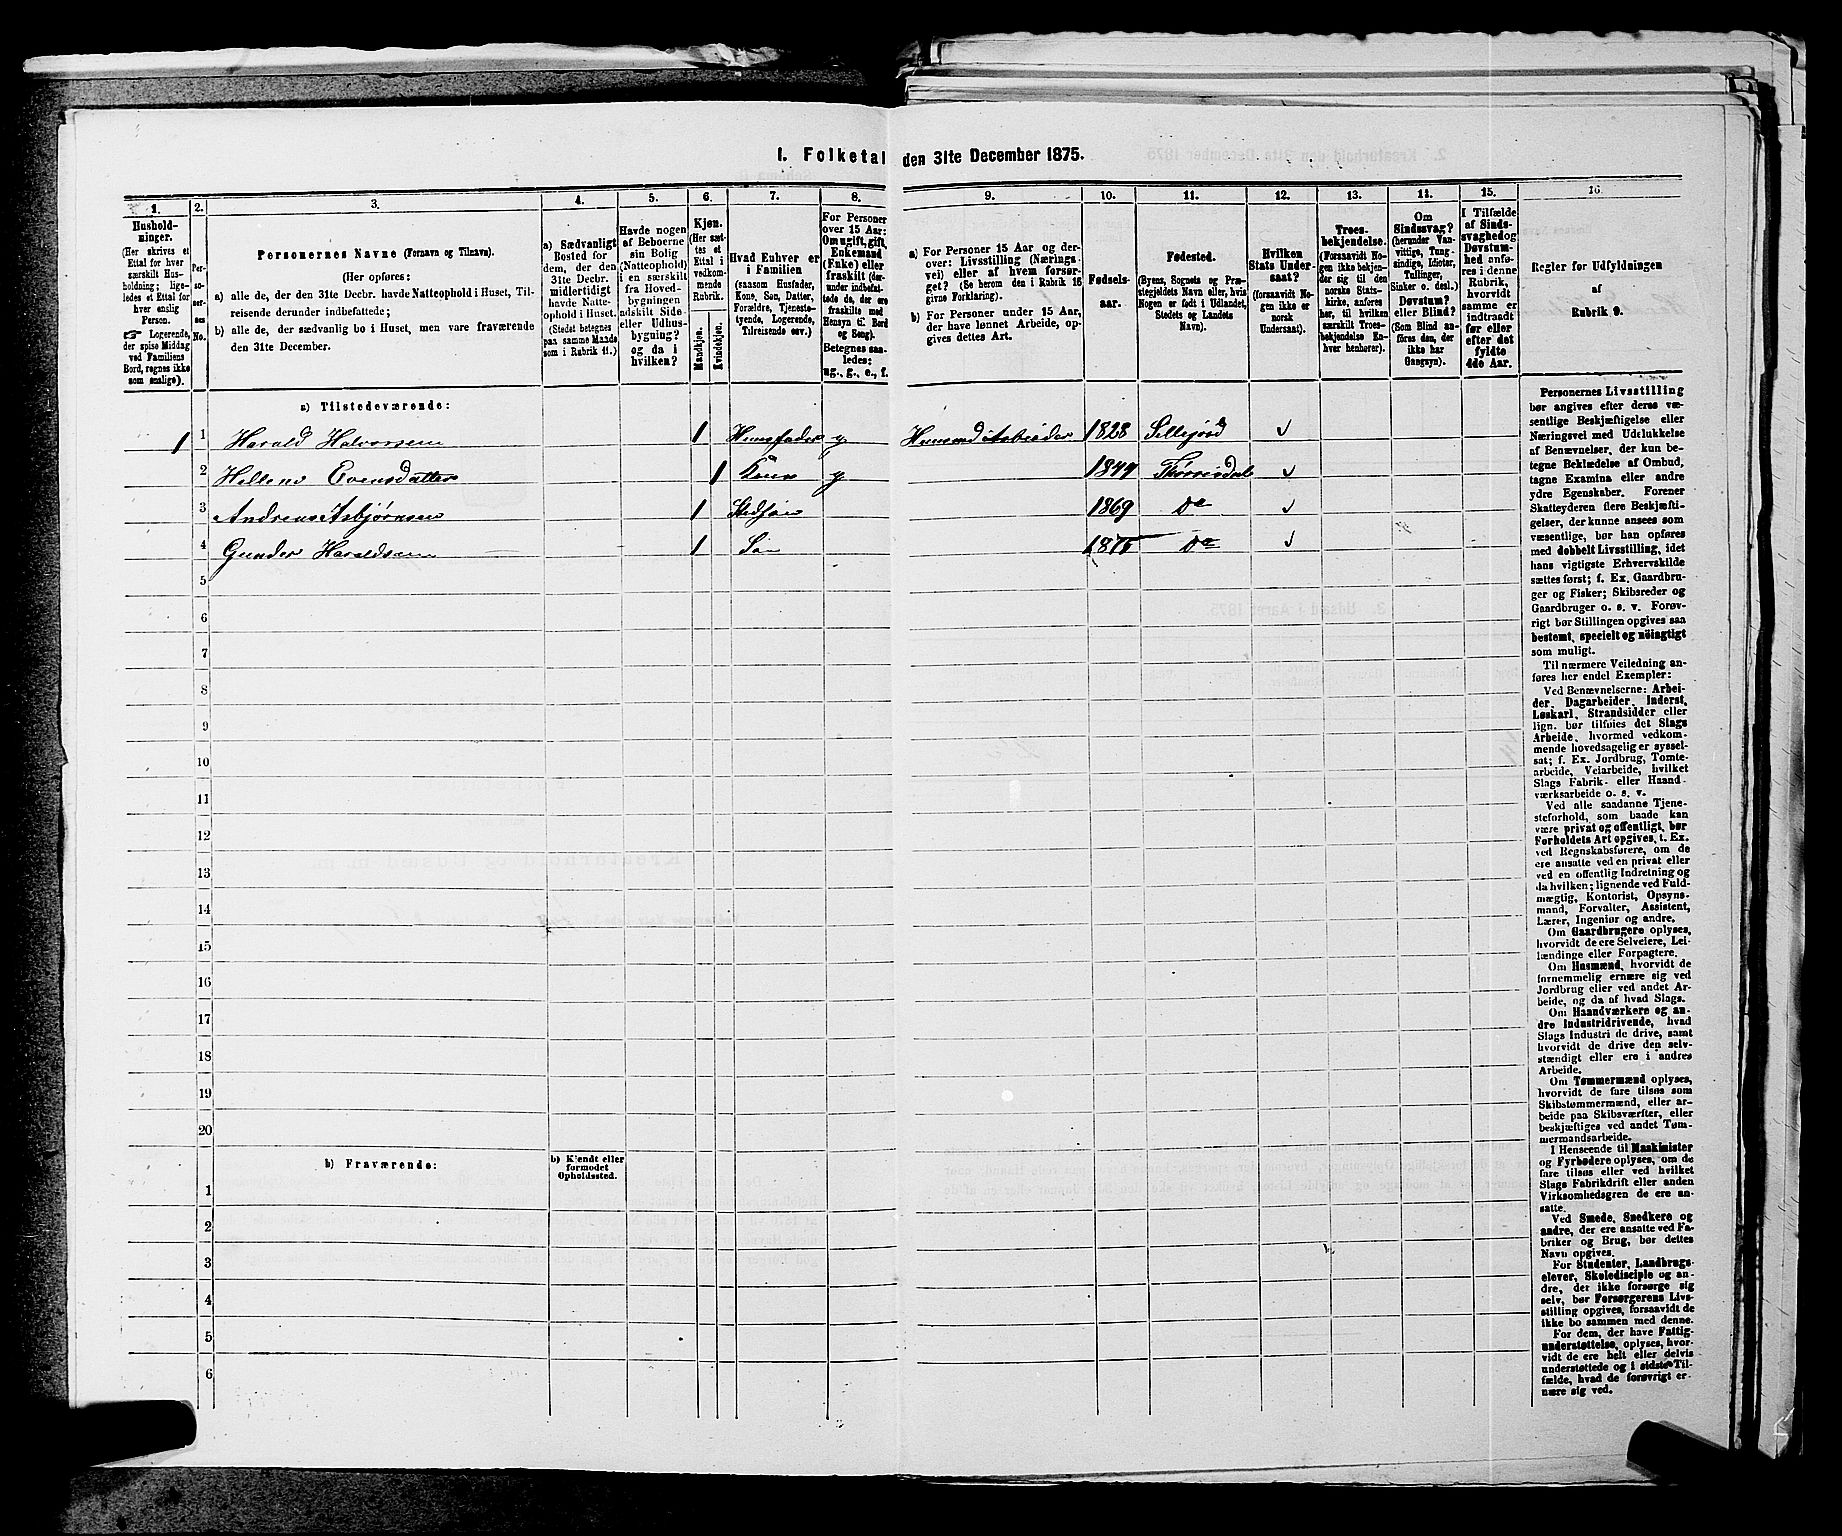 1. Folketal den 31te December 1875.
1.
Husholdninger.
(Her skrives et
Ettal for hver
særskilt Husholdning; ligeledes
et Ettal for
hver enslig
Person.
☞ Logerende,
der spise Middag
ved Familiens
Bord, regnes ikke
som enslige).
2.
Personernes
No.
3.
Personernes Navne (Fornavn og Tilnavn).
(Her opføres:
a) alle de, der den 31te Decbr. havde Natteophold i Huset, Tilreisende
derunder indbefattede;
b) alle de, der sædvanlig bo i Huset, men vare fraværende
den 31te December.
4.
a) Sædvanligt
Bosted for
dem, der den
31te Decbr.
midlertidigt
havde Natteophold
i Huset.
(Stedet betegnes
paa samme Maade
som i Rubrik 11.)
5.
Havde nogen
af Beboerne
sin Bolig
(Natteophold)
i en særskilt
fra Hovedbygningen
adskilt Side-
eller Udhusbygning?
og da i
hvilken?
6.
Kjøn.
(Her sættes
et
Ettal i
vedkommende
Rubrik.
Mandkjøn.
Kvindekjøn.
7.
Hvad Enhver er
i Familien
(saasom Husfader,
Kone, Søn, Datter,
Forældre, Tjenestetyende,
Logerende,
Tilreisende osv.)
8.
For Personer
over 15 Aar:
Om ugift, gift,
Enkemand
(Enke) eller
fraskilt (derunder
indbefattede
de, der ere
fraskilte med
Hensyn til Bord
og Seng).
Betegnes saaledes:
ug., g., e., f.
9.
a) For Personer 15 Aar og derover:
Livsstilling (Næringsvei)
eller af hvem forsørget?
(Se herom den i Rubrik 16
givne Forklaring).
b) For Personer under 15 Aar,
der have lønnet Arbeide, opgives
dettes Art.
10.
Fødselsaar.
11.
Fødested.
(Byens, Sognets og Præstegjeldets
Navn eller, hvis
Nogen er født i Udlandet,
Stedets og Landets
Navn).
12.
Hvilken
Stats Undersaat?
(forsaavidt Nogen
ikke er
norsk
Undersaat).
13.
Troesbekjendelse.
(Forsaavidt Nogen
ikke bekjender
sig til den
norske Statskirke,
anføres
her, til hvilken
særskilt Troesbekjendelse
Enhver
henhører).
14.
Om
Sindssvag?
(herunder Vanvittige,
Tungsindige,
Idioter,
Tullinger,
Sinker o. desl.)
Døvstum?
eller Blind?
(Som Blind anføres
den, der
ikke har
Gangsyn).
15.
I Tilfælde
af Sindssvaghed
og
Døvstumhed
anføres
i denne
Rubrik,
hvorvidt
samme er
indtraadt
før eller
efter det
fyldte
4de Aar.
16.
Regler for Udfyldningen
af
Rubrik 9.
a) Tilstedeværende:
1 1 Harald Halvorsen 1 Huusfader g Huusmd Arbeider 1828 Sillejord ✓
2 Hellene Evensdatter 1 Kone g 1844 Tørrisdal ✓
3 Andreas Asbjørnsen 1 Stedsøn 1869 Do ✓
4 Gunder Haraldsen 1 Søn 1875 Do ✓
5
6
7
8
9
10
11
12
13
14
15
16
17
18
19
20
b) Fraværende:
b) Kjendt eller
formodet
Opholdssted.
1
2
3
4
5
6
Personernes Livsstilling
bør angives efter deres væsentlige
Beskjæftigelse eller
Næringsvei med Udelukkelse
af Benævnelser, der kun betegne
Beklædelse af Ombud,
tagne Examina eller andre
ydre Egenskaber. Forener
Skatteyderen flere Beskjæftigelser,
der kunne ansees som
væsentlige, bør han opføres
med dobbelt Livsstilling, idet
hans vigtigste Erhvervskilde
sættes først; f. Ex. Gaardbruger
og Fisker; Skibsreder og
Gaardbruger o. s. v. Forøvrigt
bør Stillingen opgives saa
bestemt, specielt og nöiagtigt
som muligt.
Til nærmere Veiledning anføres
her endel Exempler:
Ved Benævnelserne: Arbeider,
Dagarbeider, Inderst,
Løskarl, Strandsidder eller
lign. bør tilføies det Slags
Arbeide, hvormed vedkommende
hovedsagelig er sysselsat;
f. Ex. Jordbrug, Tomtearbeide,
Veiarbeide, hvilket
Slags Fabrik- eller Haandværksarbeide
o. s. v.
Ved alle saadanne Tjenesteforhold,
som baade kan
være privat og offentligt, bør
Forholdets Art opgives, t. Ex.
ved Regnskabsførere, om de
ere ansatte ved en privat eller
ved en offentlig Indretning og
da hvilken; lignende ved Fuldmægtig,
Kontorist, Opsynsmand,
Forvalter, Assistent,
Lærer, Ingeniør og andre.
Om Gaardbrugere oplyses,
hvorvidt de ere Selveiere, Leilændinge
eller Forpagtere.
Om Husmænd, hvorvidt de
fornemmelig ernære sig ved
Jordbrug eller ved andet Arbeide,
og da af hvad Slags.
Om Haandværkere og andre
Industridrivende, hvad
Slags Industri de drive, samt
hvorvidt de drive den selvstændigt
eller ere i andres
Arbeide.
Om Tømmermænd oplyses,
hvorvidt de fare tilsøs som
Skibstømmermænd, eller arbeide
paa Skibsværfter, eller
beskjæftiges ved andet Tømmermandsarbeide.
I Henseende til Maskinister
og Fyrbødere oplyses, om de
fare tilsøs eller ved hvilket
Slags Fabrikdrift eller anden
Virksomhedsgren de ere ansatte.
Ved Smede, Snedkere og
andre, der ere ansatte ved Fabriker
og Brug, bør dettes
Navn opgives.
For Studenter, Landbrugselever,
Skoledisciple og andre,
der ikke forsørge sig
selv, bør Forsørgerens Livsstilling
opgives, forsaavidt de
ikke bo sammen med denne.
For dem, der have Fattigunderstøttelse,
oplyses, hvorvidt
de ere helt eller delvis
understøttede og i sidste Tilfælde,
hvad de forøvrigt ernære
sig ved.